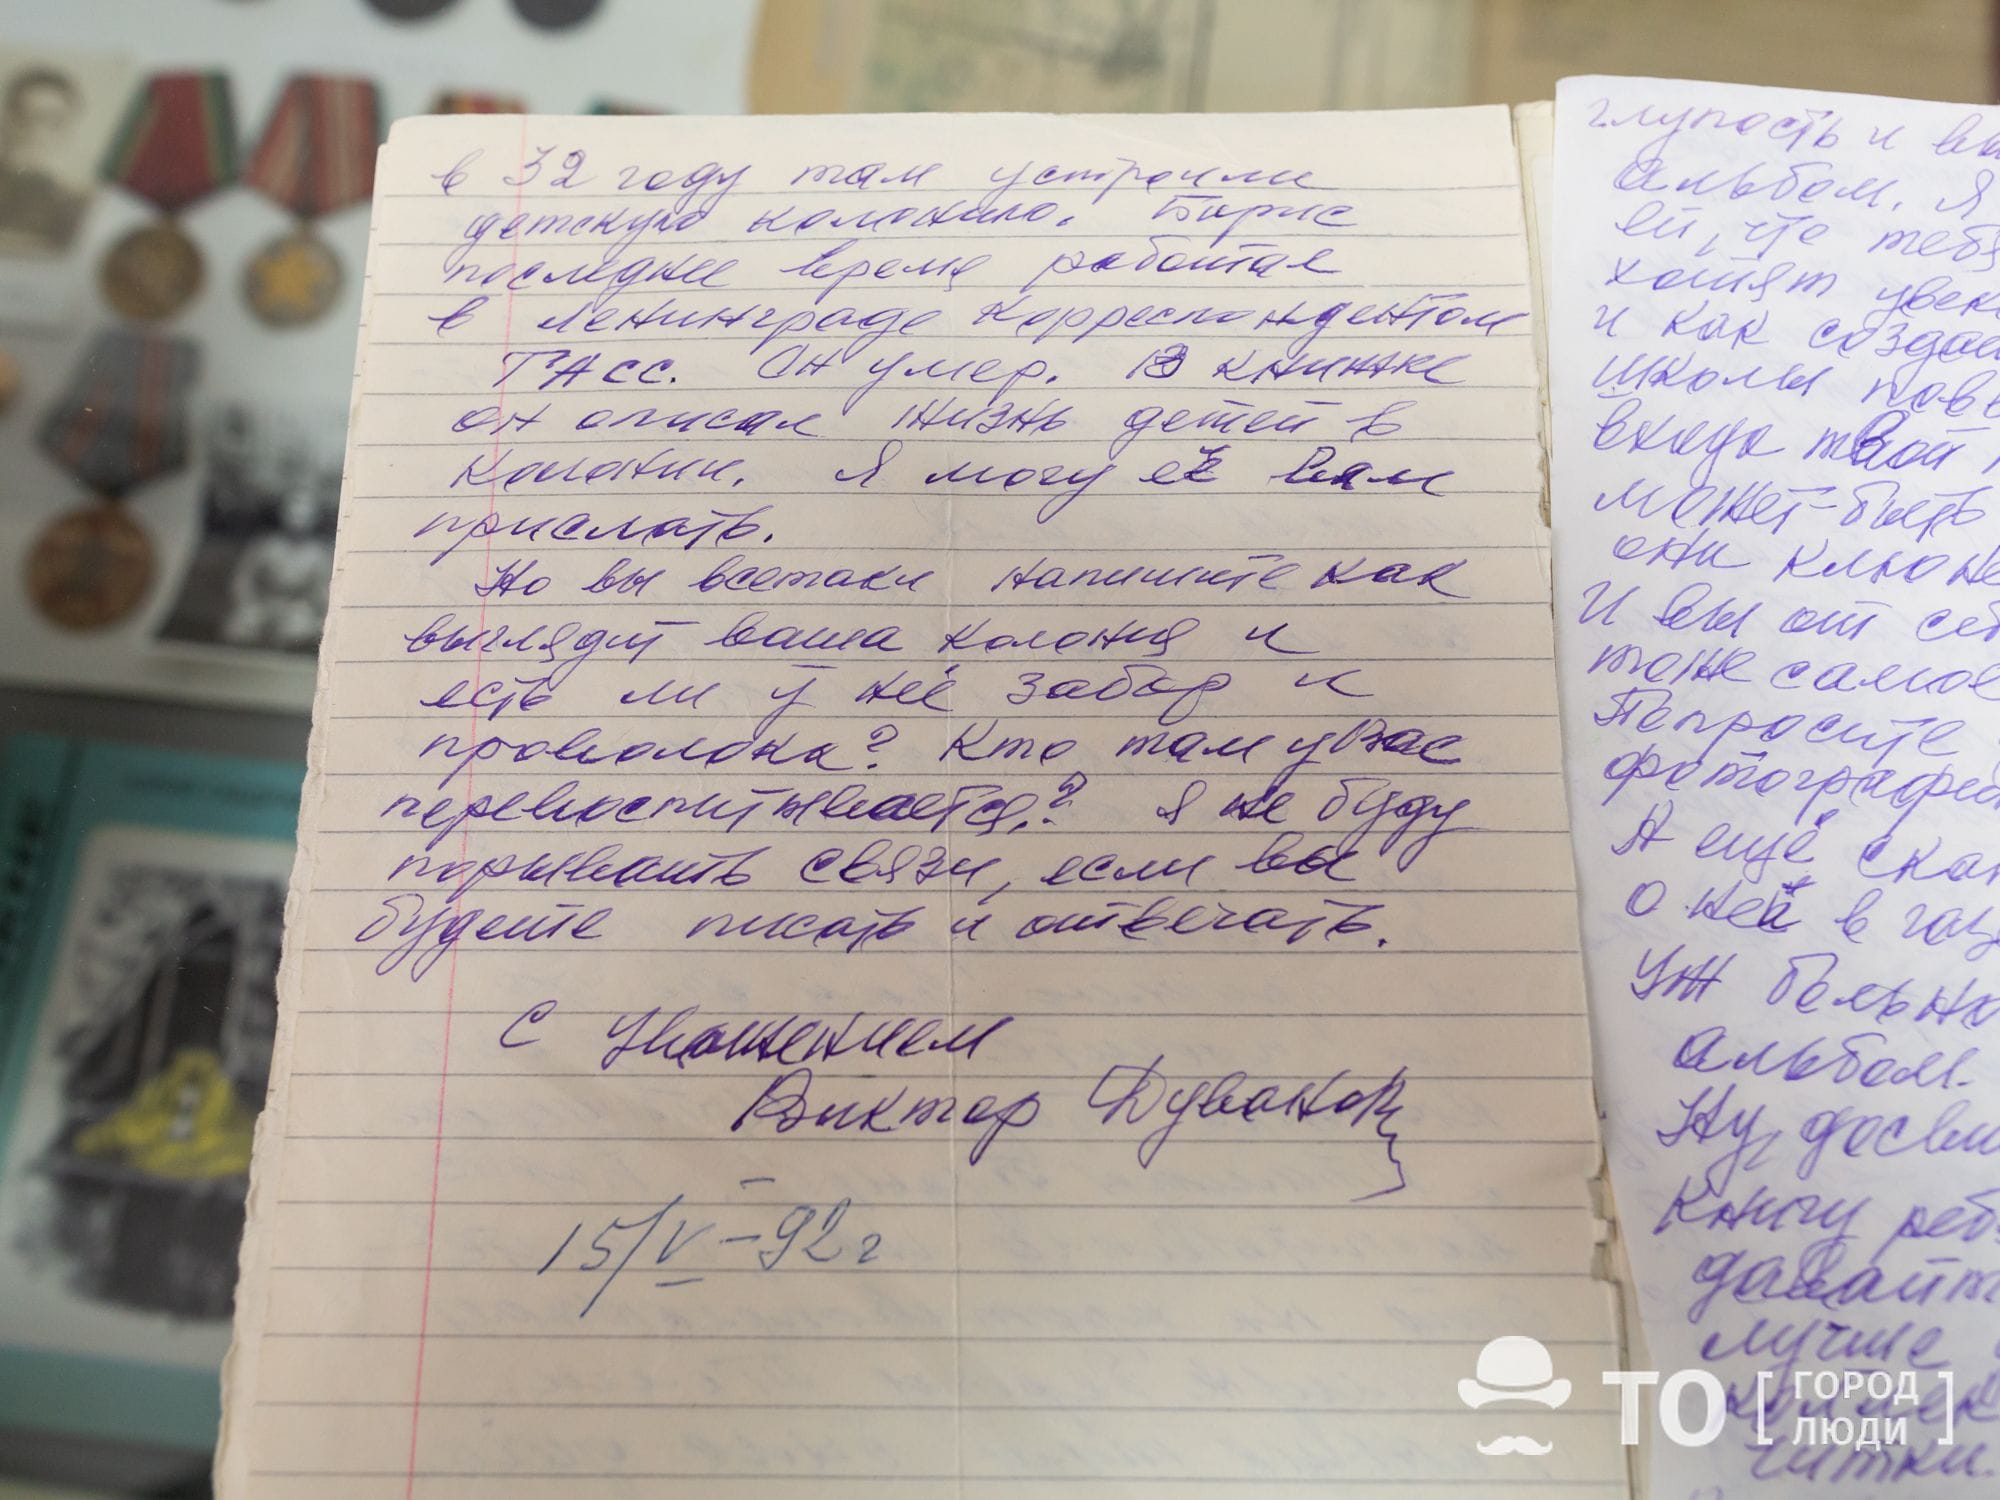 в 32 году там устроили
детскую колонию. Борис
последнее время работал
в Ленинграде корреспондентом
ТАСС. Он умер. В книжке
он описал жизнь детей в
колонии. Я могу её Вам
прислать.
Но вы всетаки напишите как
выглядит ваша колония и
есть ли у неё забор и
проволока? Кто там у вас
перевоспитывается? Я не буду
порывать связи, если вы
будете писать и отвечать.
С уважением
Виктор Дуванов
15/V-92 г
глупость и
альбом. Я
ей, что тебя
хотят
и как создав
школы
входа твой
может-быть
они
И вы от себ
тоже самое
Попросите
фотографи
А ещё ска
о ней в
Уж больно
альбом.
Ну, досви
Книгу реб
давайт
лучше
коллек
читки.
ТО [ГОРОД
ЛЮДИ]